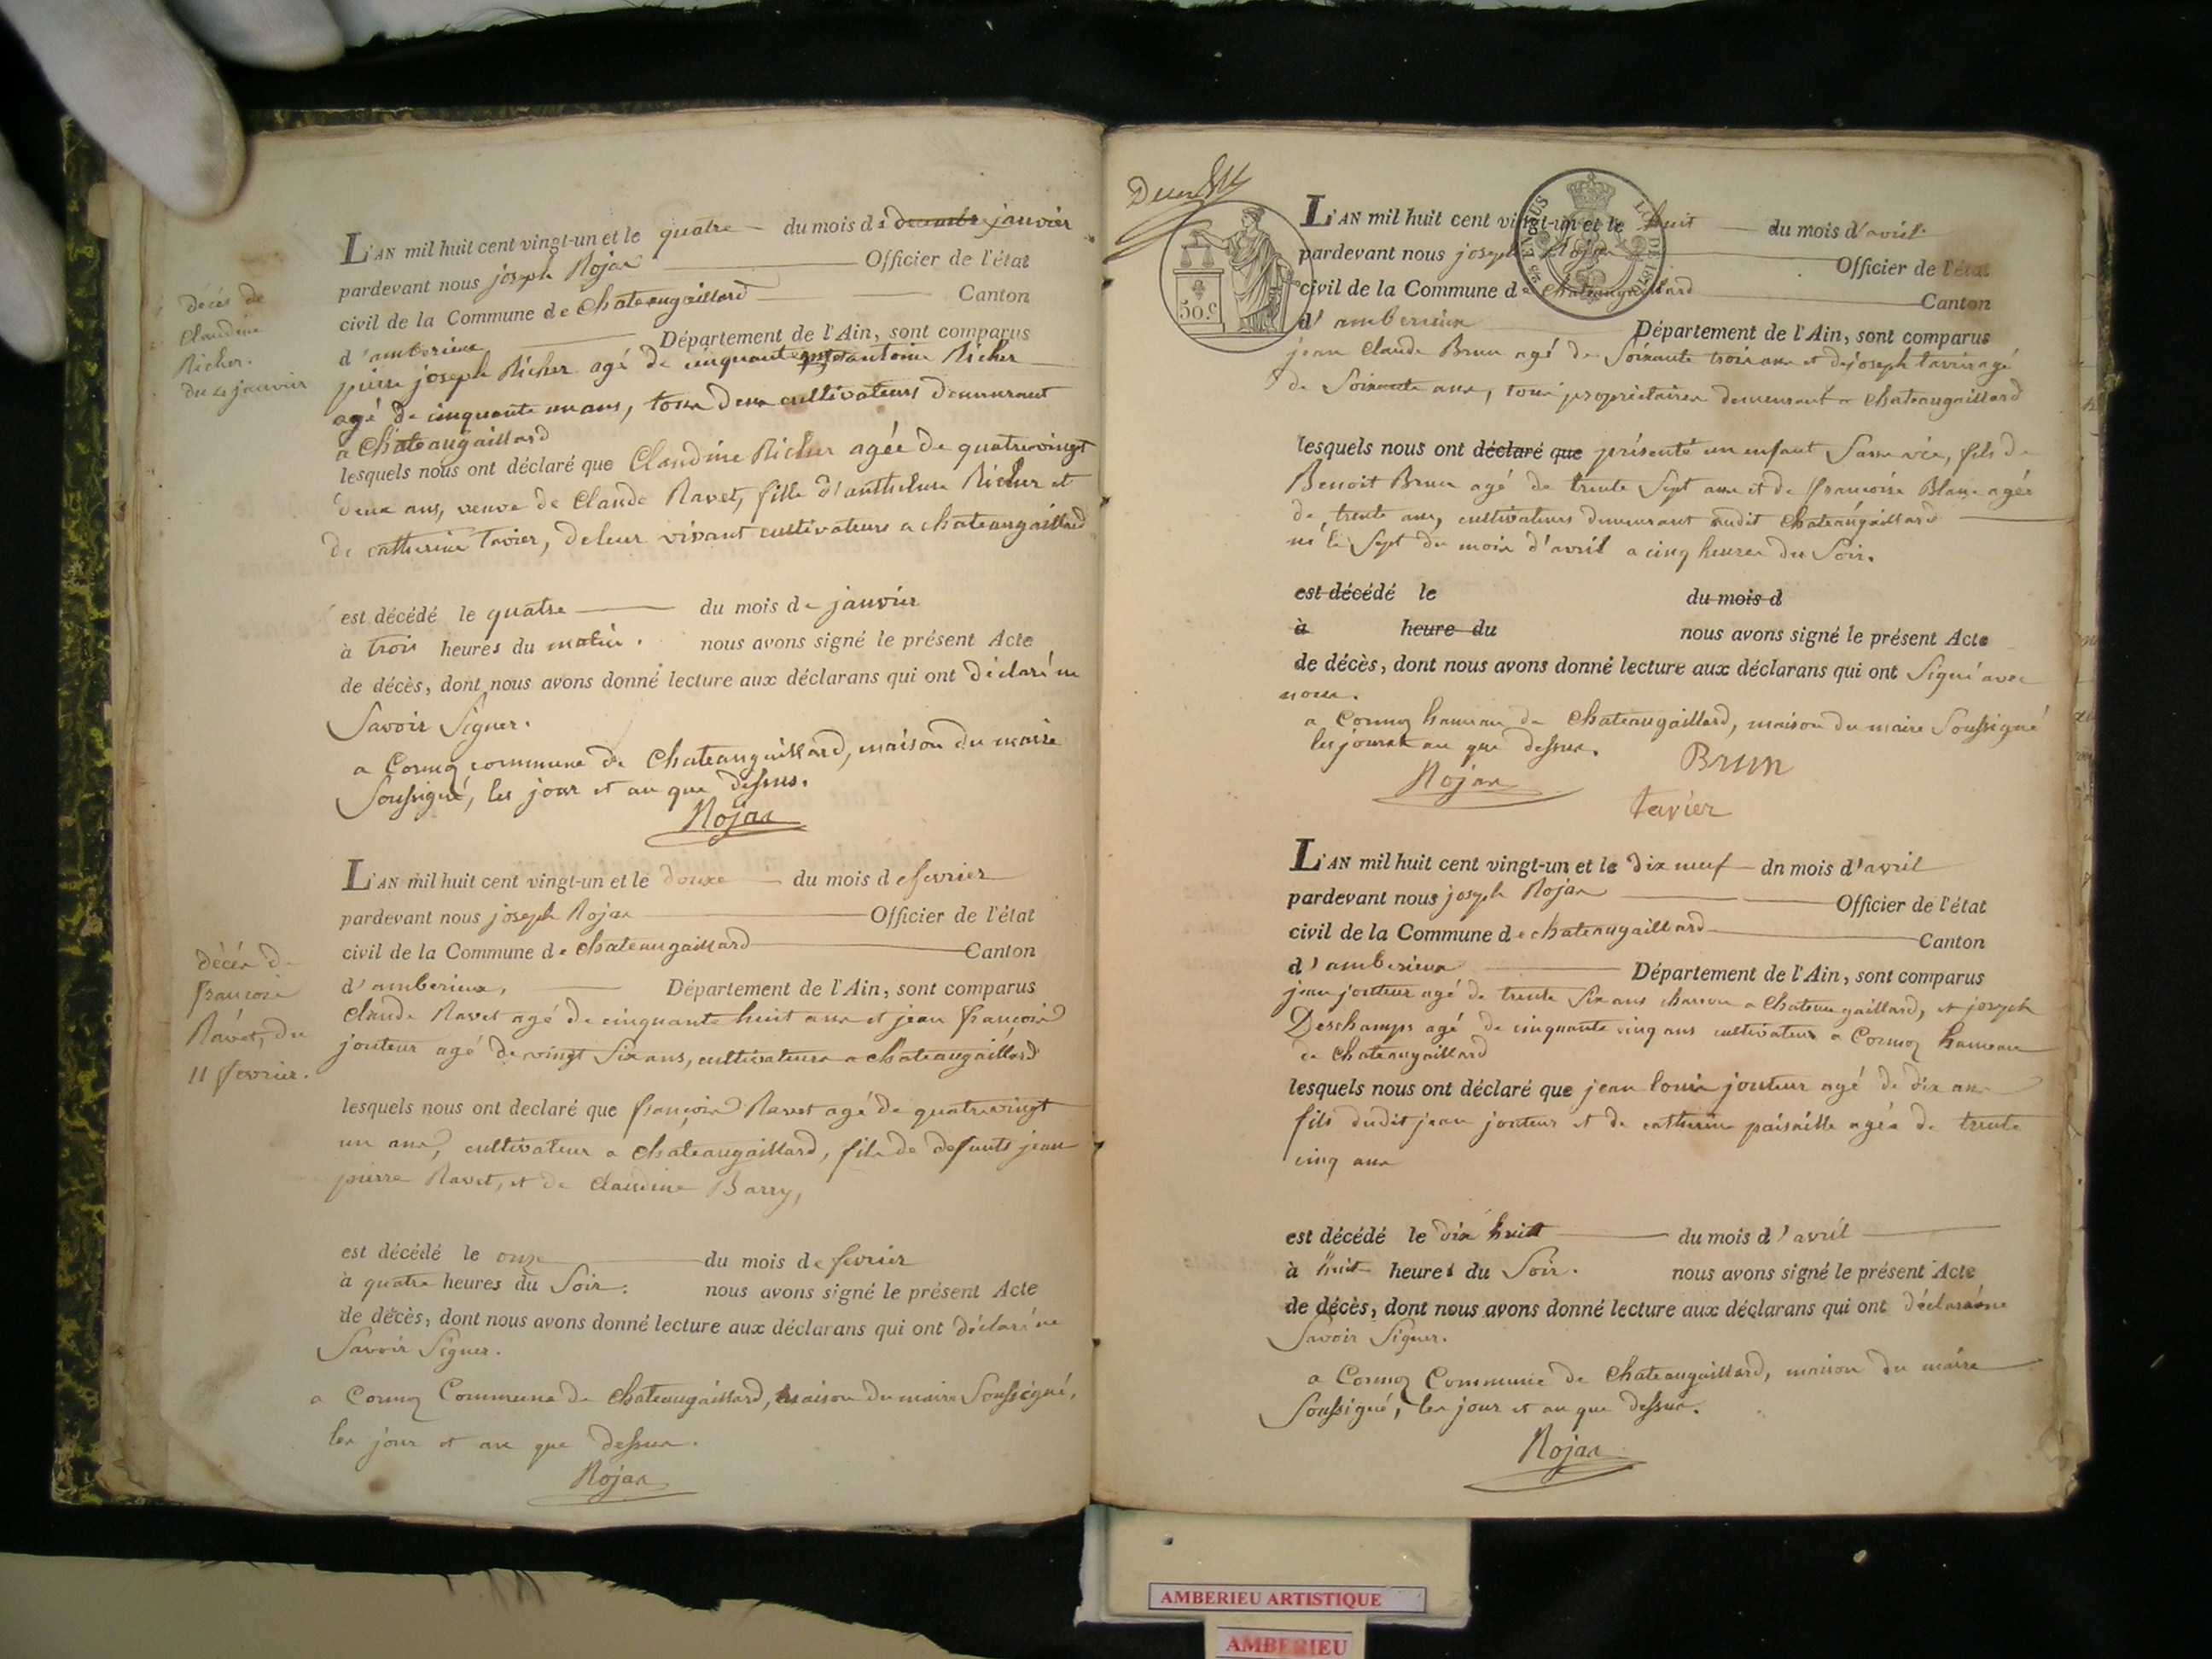 décés de
Claudine
Richer.
du 4 janvier
L'AN mil huit cent vingt-un et le quatre du mois de janvier
pardevant nous joseph Rojas Officier de l'état
civil de la Commune de Chateaugaillard Canton
d'amberieux Département de l'Ain, sont comparus
pierre joseph Richer agé de cinquante antoine Richer
agé de cinquante un ans, tous deux cultivateurs demeurant
a Chateaugaillard
lesquels nous ont déclaré que Claudine Richer agée de quatrevingt
deux ans, veuve de Claude Ravet, fille d'anthelme Richer et
de catherine Tavier, de leur vivant cultivateurs a chateaugaillard
est décédé le quatre du mois de janvier
à trois heures du matin. nous avons signé le présent Acte
de décès, dont nous avons donné lecture aux déclarans qui ont déclaré ne
Savoir Signer.
a Cormoz commune de Chateaugaillard, maison du maire
Soussigné, les jour et an que dessus.
Rojas
décés de
françois
Ravet, du
11 fevrier.
L'AN mil huit cent vingt-un et le douze du mois de fevrier
pardevant nous joseph Rojas Officier de l'état
civil de la Commune de chateaugaillard Canton
d'amberieux, Département de l'Ain, sont comparus
claude Ravet agé de cinquante huit ans et jean françois
jouteur agé de vingt Six ans, cultivateurs a chateaugaillard
lesquels nous ont declaré que françois Ravet agé de quatrevingt
un ans, cultivateur a chateaugaillard, fils de defunts jean
pierre Ravet, et de claudine Barry,
est décédé le onze du mois de fevrier
à quatre heures du Soir. nous avons signé le présent Acte
de décès, dont nous avons donné lecture aux déclarans qui ont déclaré ne
Savoir Signer.
a Cormoz Commune de chateaugaillard, maison du maire Soussigné,
les jour et an que dessus.
Rojas
50.c
L'AN mil huit cent vingt-un et le huit du mois d'avril
pardevant nous joseph Rojas Officier de l'état
civil de la Commune de chateaugaillard Canton
d'amberieux Département de l'Ain, sont comparus
jean Claude Brun agé de Soixante trois ans et de joseph tavier agé
de Soixante ans, tous propriétaires demeurant a chateaugaillard
lesquels nous ont déclaré que présenté un enfant Sans vie, fils de
Benoit Brun agé de trente Sept ans et de françoise Blanc agée
de trente ans, cultivateurs demeurant audit chateaugaillard
né le Sept du mois d'avril a cinq heures du Soir.
est décédé le du mois d
à heure du nous avons signé le présent Acte
de décès, dont nous avons donné lecture aux déclarans qui ont Signé avec
nous.
a Cormoz hameau de chateaugaillard, maison du maire Soussigné
les jour et an que dessus.
Brun
Rojas
tavier
L'AN mil huit cent vingt-un et le dix neuf dn mois d'avril
pardevant nous joseph Rojas Officier de l'état
civil de la Commune de chateaugaillard Canton
d'amberieux Département de l'Ain, sont comparus
jean jouteur agé de trente Six ans charron a chateaugaillard, et joseph
Deschamps agé de cinquante cinq ans cultivateur a Cormoz hameau
de chateaugaillard
lesquels nous ont déclaré que jean louis jouteur agé de dix ans
fils dudit jean jouteur et de catherine paisaille agée de trente
cinq ans
est décédé le dix huit du mois d'avril
à huit heures du Soir. nous avons signé le présent Acte
de décès, dont nous avons donné lecture aux déclarans qui ont déclaré ne
Savoir Signer.
a Cormoz Commune de chateaugaillard, maison du maire
Soussigné, les jour et an que dessus.
Rojas
AMBERIEU ARTISTIQUE
AMBERIEU